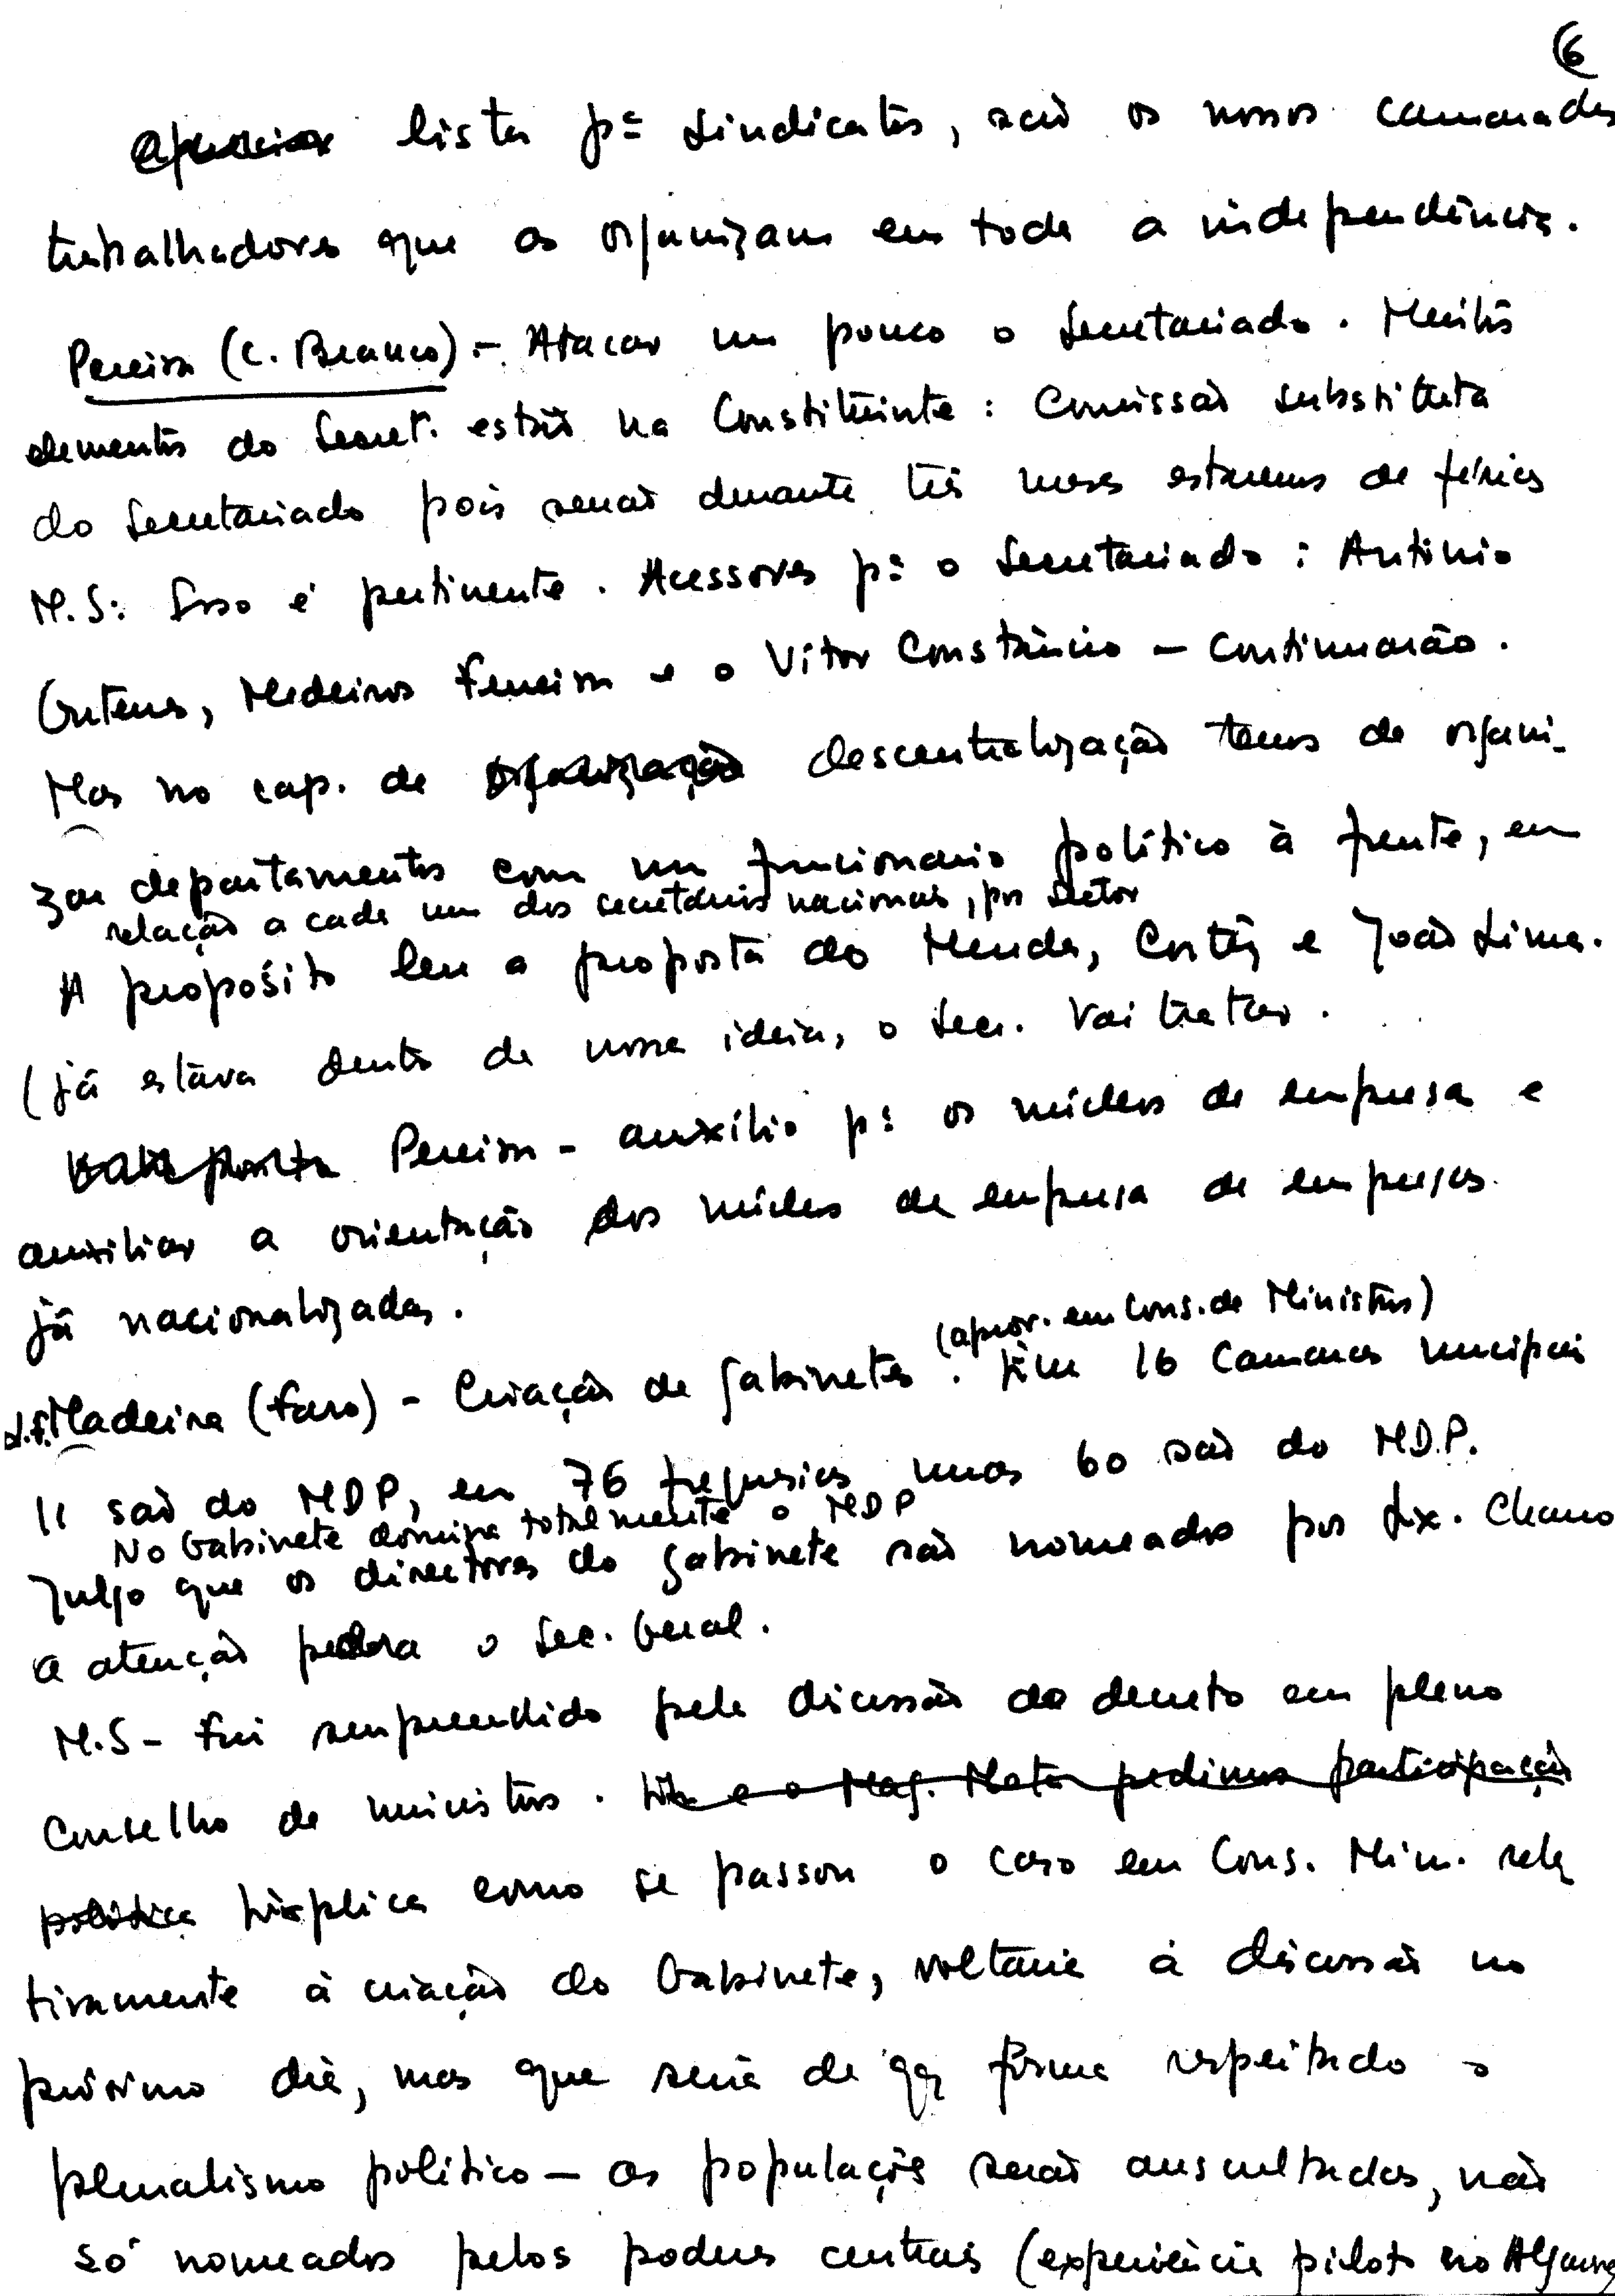 6
lista pª Sindicatos, são os nossos camaradas
trabalhadores que as organizam em toda a independência.
Pereira (C. Branco) - Atacar um pouco o Secretariado. Muitos
elementos do Secret. estão na Constituinte: Comissão substituta
do Secretariado pois senão durante três meses estaremos de férias
M.S: Isso é pertinente. Acessores pª o Secretariado: António
Guterres, Medeiros Ferreira e o Vítor Constâncio - continuarão.
Mas no cap. de organização descentralização temos de organi-
zar departamentos com um funcionario político à frente, em
relação a cada um dos secretários nacionais, por Setor
A propósito leu a proposta do Mendes, Cortês e João Lima.
(já estava dentro da nossa ideia, o Secr. vai tratar.
Pereira - auxílio pª os núcleos de empresa e
auxiliar a orientação dos núcleos de empresa de empresas
já nacionalizadas.
(aprov. em Cons. de Ministros)
L.F. Madeira (Faro) - Criação de gabinetes. Em 16 Camaras municipais
11 são do MDP, em 76 freguesias umas 60 são do M.D.P.
No Gabinete domina totalmente o MDP
Julgo que os directores do gabinete são nomeados por Lix. Chamo
a atenção para o Sec. Geral.
M.S - Fui surpreendido pela discussão do decreto em pleno
Conselho de ministros. e o Mag. Mota pedimos participação
política Explica como se passou o caso em Cons. Min. rela
tivamente à criação do Gabinete, voltaria à discussão no
próximo dia, mas que seria de qq forma respeitado o
pluralismo político - as populações serão auscultadas, não
só nomeados pelos poderes centrais (experiência piloto no Algarve